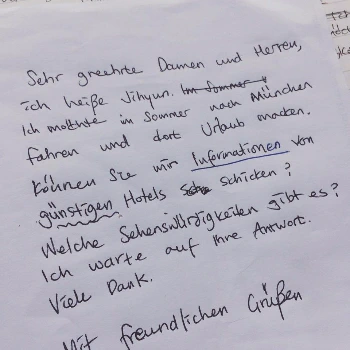 Sehr greehrte Damen und Herren,
ich heiße Jihyun. Im Sommer
Ich mothhte in Sommer nach München
fahren und dort Urlaub machen.
Können Sie mir Informationen von
günstigen Hotels schicken?
Welche Sehenswürdigkeiten gibt es?
Ich warte auf Ihre Antwort.
Viele Dank.
Mit freundlichen Grüßen